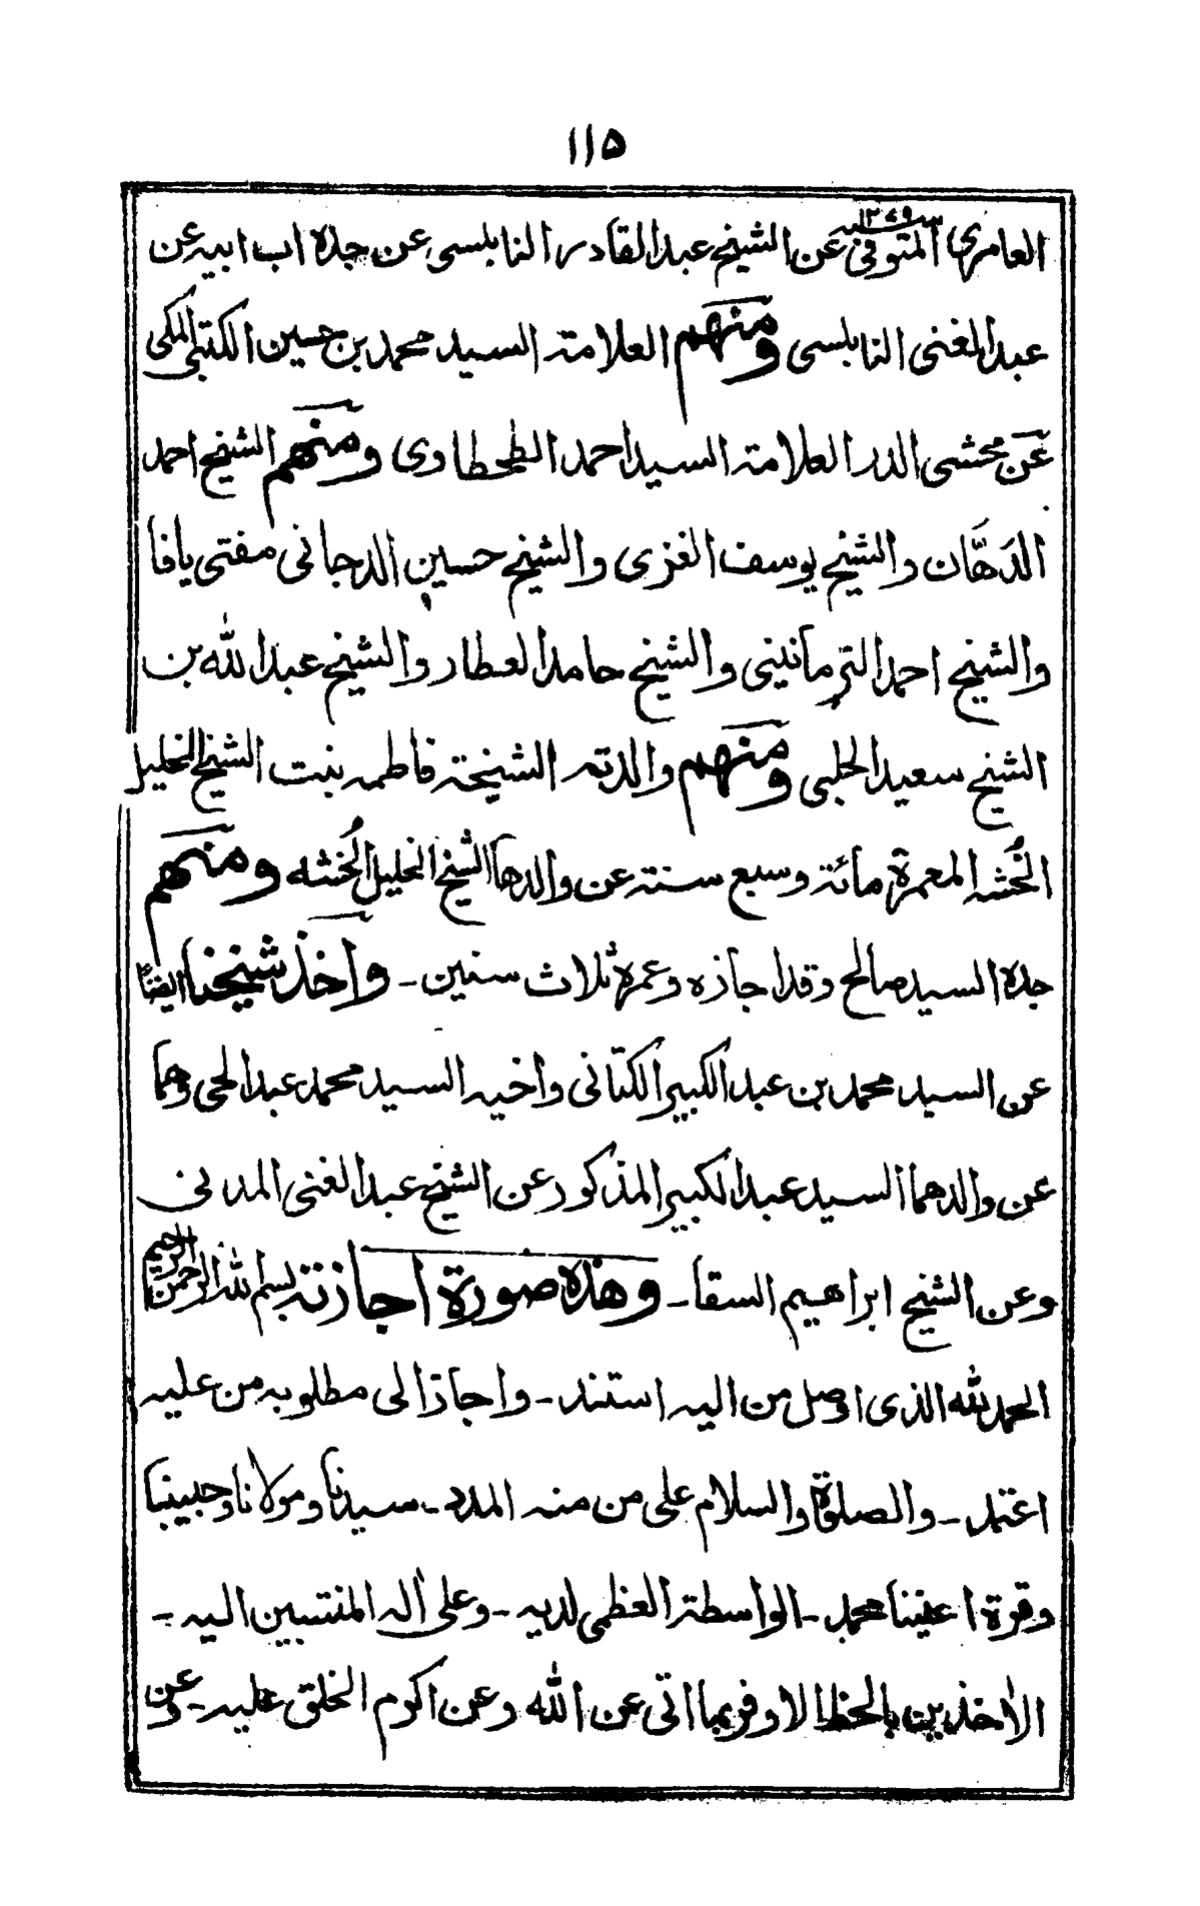 ١١٥
العامري المتوفى سنه ١٢٧٩ عن الشيخ عبد القادر النابلسى عن جده اب ابيه عن
عبد الغنى النابلسى ومنهم العلامة السيد محمد بن حسين الكتبى المكى
عن محشى الدر العلامة السيد احمد الطحطاوى ومنهم الشيخ احمد
الدهَّان والشيخ يوسف الغزى والشيخ حسين الدجانى مفتى يافا
والشيخ احمد الترمانينى والشيخ حامد العطار والشيخ عبد الله بن
الشيخ سعيد الحلبى ومنهم والدته الشيخة فاطمه بنت الشيخ الخليل
الخُشه المعمرة مائة وسبع سنة عن والدها الشيخ الخليل الخُشه ومنهم
جده السيد صالح وقد اجازه وعمره ثلاث سنين ـ واخذ شيخنا ايضًا
عن السيد محمد بن عبد الكبير الكتانى واخيه السيد محمد عبد الحى وهما
عن والدهما السيد عبد الكبير المذكور عن الشيخ عبد الغنى المدنى
وعن الشيخ ابراهيم السقا ـ وهذه صورة اجازته بسم الله الرحمن الرحيم
الحمد لله الذى اوصل من اليه استند ـ واجاز الى مطلوبه من عليه
اعتمد ـ والصلوة والسلام على من منه المدد ـ سيدنا ومولانا وحبيبنا
وقرة اعيننا محمد ـ الواسطة العظمى لديه ـ وعلى أله المنتسبين اليه ـ
الأخذين بالحظ الاوفر بما اتى عن الله وعن اكرم الخلق عليه ـ وعن